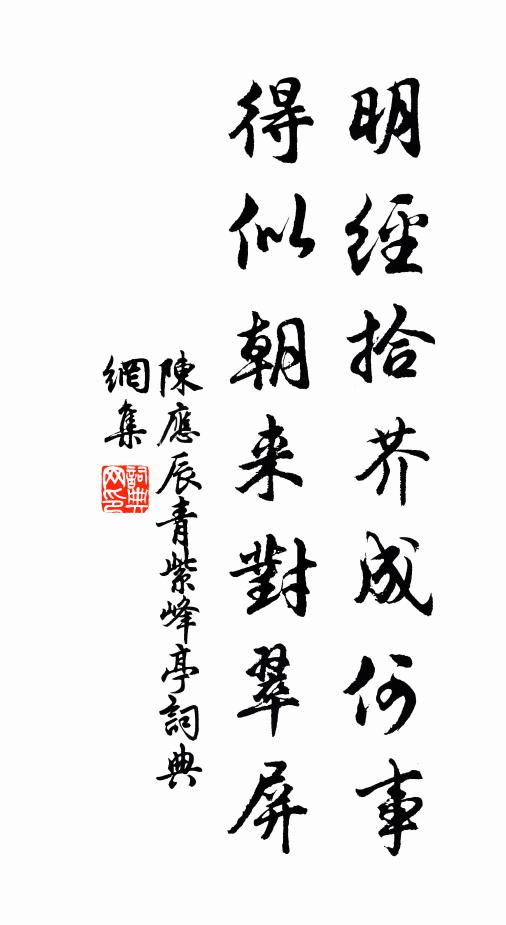 明經拾芥成何事
得似朝来對翠屏
陳應辰青紫峰亭詞典
網集
詞典網印